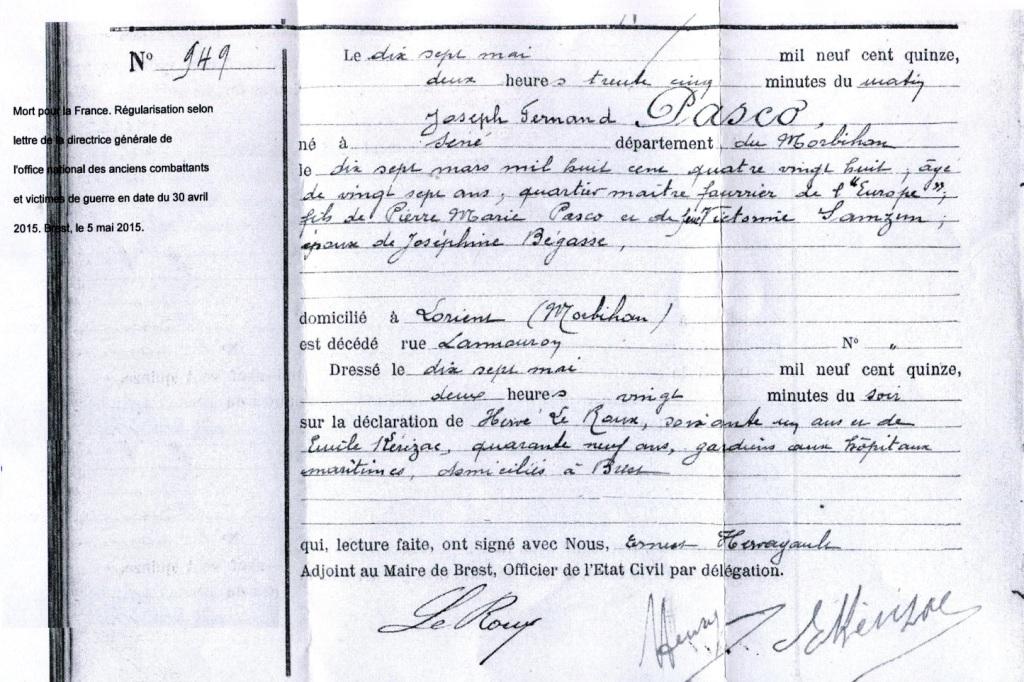 N° 949
Mort pour la France. Régularisation selon
lettre de la directrice générale de
l'office national des anciens combattants
et victimes de guerre en date du 30 avril
2015. Brest, le 5 mai 2015.
Le dix sept mai mil neuf cent quinze,
deux heures trente cinq minutes du matin
Joseph Fernand Pasco,
né à Séné département du Morbihan
le dix sept mars mil huit cent quatre vingt huit, âgé
de vingt sept ans, quartier maître fourrier de l'"Europe",
fils de Pierre Marie Pasco et de feue Victorine Samzun,
époux de Joséphine Bégasse,
domicilié à Lorient (Morbihan)
est décédé rue Lannouron N° „
Dressé le dix sept mai mil neuf cent quinze,
deux heures vingt minutes du soir
sur la déclaration de Hervé Le Roux, soixante un ans et de
Emile Kérizac, quarante neuf ans, gardiens aux hôpitaux
maritimes, domiciliés à Brest
qui, lecture faite, ont signé avec Nous, Ernest Hervagault
Adjoint au Maire de Brest, Officier de l'Etat Civil par délégation.
Le Roux